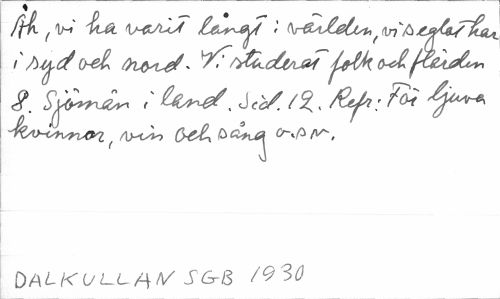 Åh, vi ha varit långt i världen, vi seglat har
i syd och nord. Vi studerat folk och flärden
8. Sjömän i land. Sid. 12. Refr: För ljuva
kvinnor, vin och sång o.s.v.
DALKULLAN SGB 1930